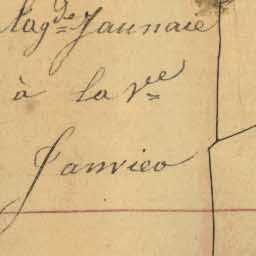 Mag^de Jaunaie
à la V^e
Janvier